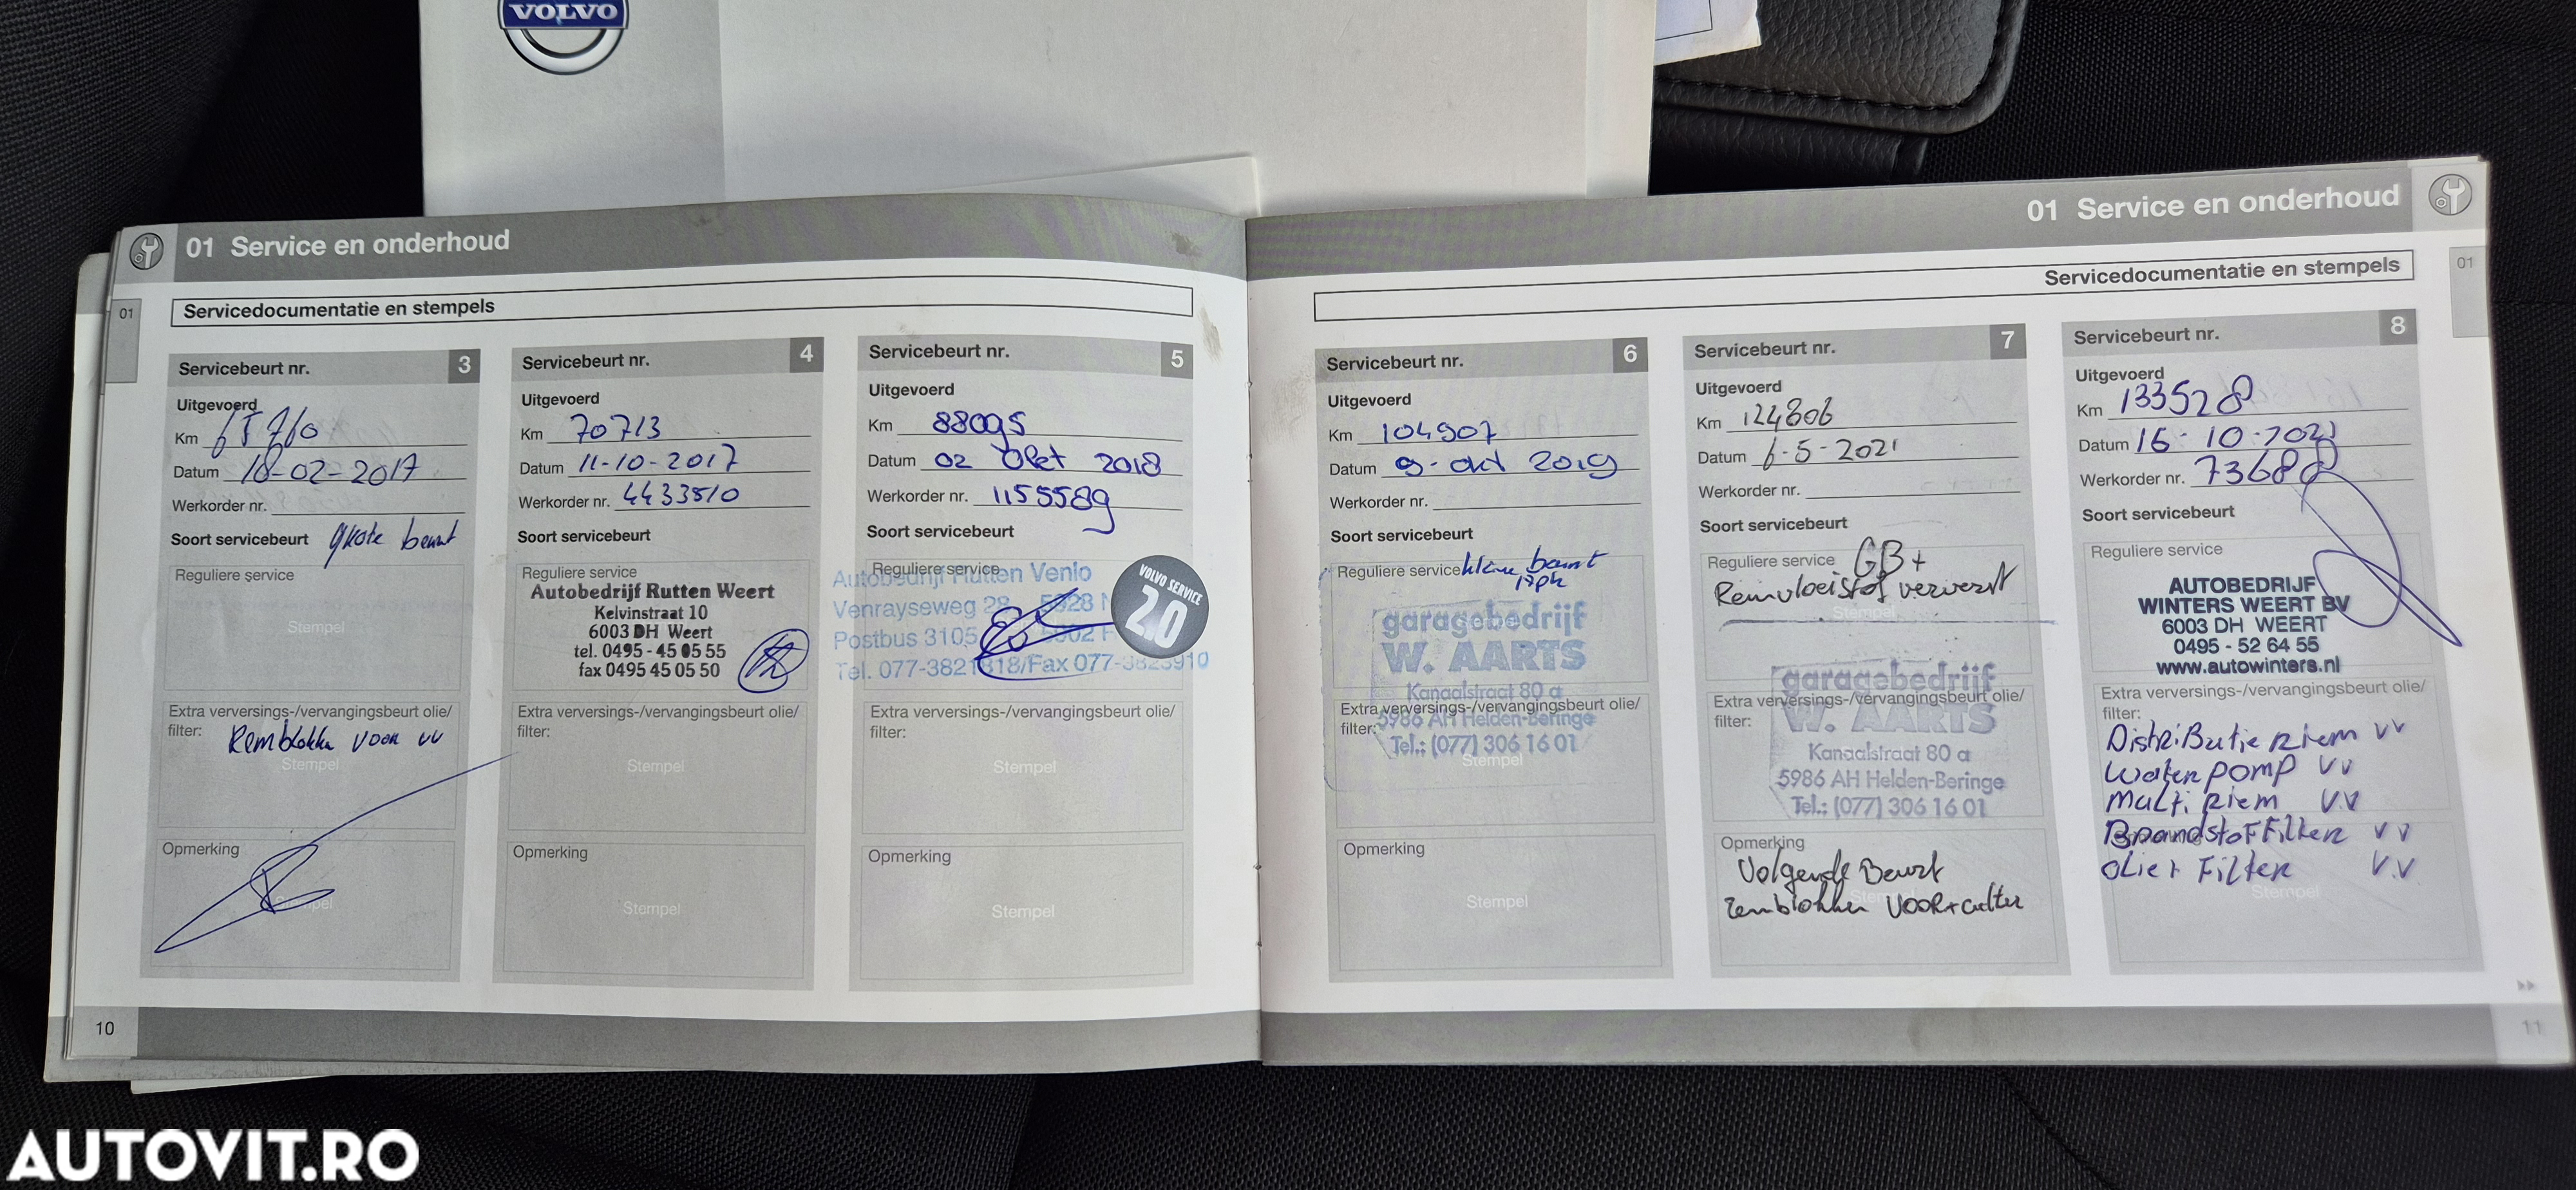 VOLVO
01 Service en onderhoud
01
Servicedocumentatie en stempels
Servicebeurt nr. 3
Uitgevoerd
Km
Datum 18-02-2017
Werkorder nr.
Soort servicebeurt grote beurt
Reguliere service
Stempel
Extra verversings-/vervangingsbeurt olie/
filter: Remblokken voor vv
Stempel
Opmerking
Stempel
10
Servicebeurt nr. 4
Uitgevoerd
Km 70713
Datum 11-10-2017
Werkorder nr. 4433510
Soort servicebeurt
Reguliere service
Autobedrijf Rutten Weert
Kelvinstraat 10
6003 DH Weert
tel. 0495-45 05 55
fax 0495 45 05 50
Extra verversings-/vervangingsbeurt olie/
filter:
Stempel
Opmerking
Stempel
Servicebeurt nr. 5
Uitgevoerd
Km 88095
Datum 02 Okt 2018
Werkorder nr. 1155589
Soort servicebeurt
Reguliere service
Autobedrijf Rutten Venlo
Venrayseweg 28 5928
Postbus 3105, 5902
Tel. 077-3821818/Fax 077-3823910
VOLVO SERVICE
2.0
Extra verversings-/vervangingsbeurt olie/
filter:
Stempel
Opmerking
Stempel
01 Service en onderhoud
Servicedocumentatie en stempels
01
Servicebeurt nr. 6
Uitgevoerd
Km 104907
Datum 9-okt 2019
Werkorder nr.
Soort servicebeurt
Reguliere service kleine beurt
garagebedrijf
W. AARTS
Kanaalstraat 80 a
Extra verversings-/vervangingsbeurt olie/
5986 AH Helden-Beringe
filter:
Tel.: (077) 306 16 01
Stempel
Opmerking
Stempel
Servicebeurt nr. 7
Uitgevoerd
Km 124806
Datum 6-5-2021
Werkorder nr.
Soort servicebeurt
Reguliere service GB+
Remvloeistof ververst
Stempel
garagebedrijf
Extra verversings-/vervangingsbeurt olie/
filter: W. AARTS
Kanaalstraat 80 a
5986 AH Helden-Beringe
Tel.: (077) 306 16 01
Opmerking
Volgende Beurt
remblokken voor+achter
Servicebeurt nr. 8
Uitgevoerd
Km 133528
Datum 15-10-2021
Werkorder nr.
Soort servicebeurt
Reguliere service
AUTOBEDRIJF
WINTERS WEERT BV
6003 DH WEERT
0495 - 52 64 55
www.autowinters.nl
Extra verversings-/vervangingsbeurt olie/
filter:
Distributie riem vv
waterpomp vv
multi riem v.v
Brandstof Filter vv
olie+ Filter v.v
Stempel
11
AUTOVIT.RO